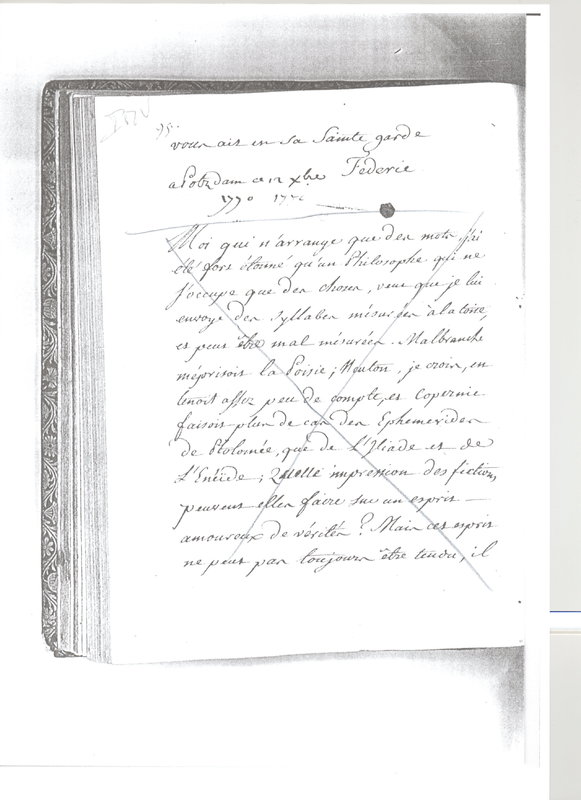 95.
vous ait en sa Sainte garde
a Potzdam ce 12 xbre Federic
1770 1770
Moi qui n'arrange que des mots, j'ai
été fort étonné qu'un Philosophe qui ne
s'occupe que des choses, veut que je lui
envoye des syllabes mésurées à la toise,
et peut être mal mésurées. Malbranche
méprisoit la Poisie; Neuton, je crois, en
tenoit assez peu de compte, et Copernic
faisoit plus de cas des Ephemerides
de Ptolomée, que de L'Iliade et de
L'Enéïde; Quelle impression des fictions
peuvent elles faire sur un esprit
amoureux de vérités? Mais cet esprit
ne peut pas toujours être tendu, il